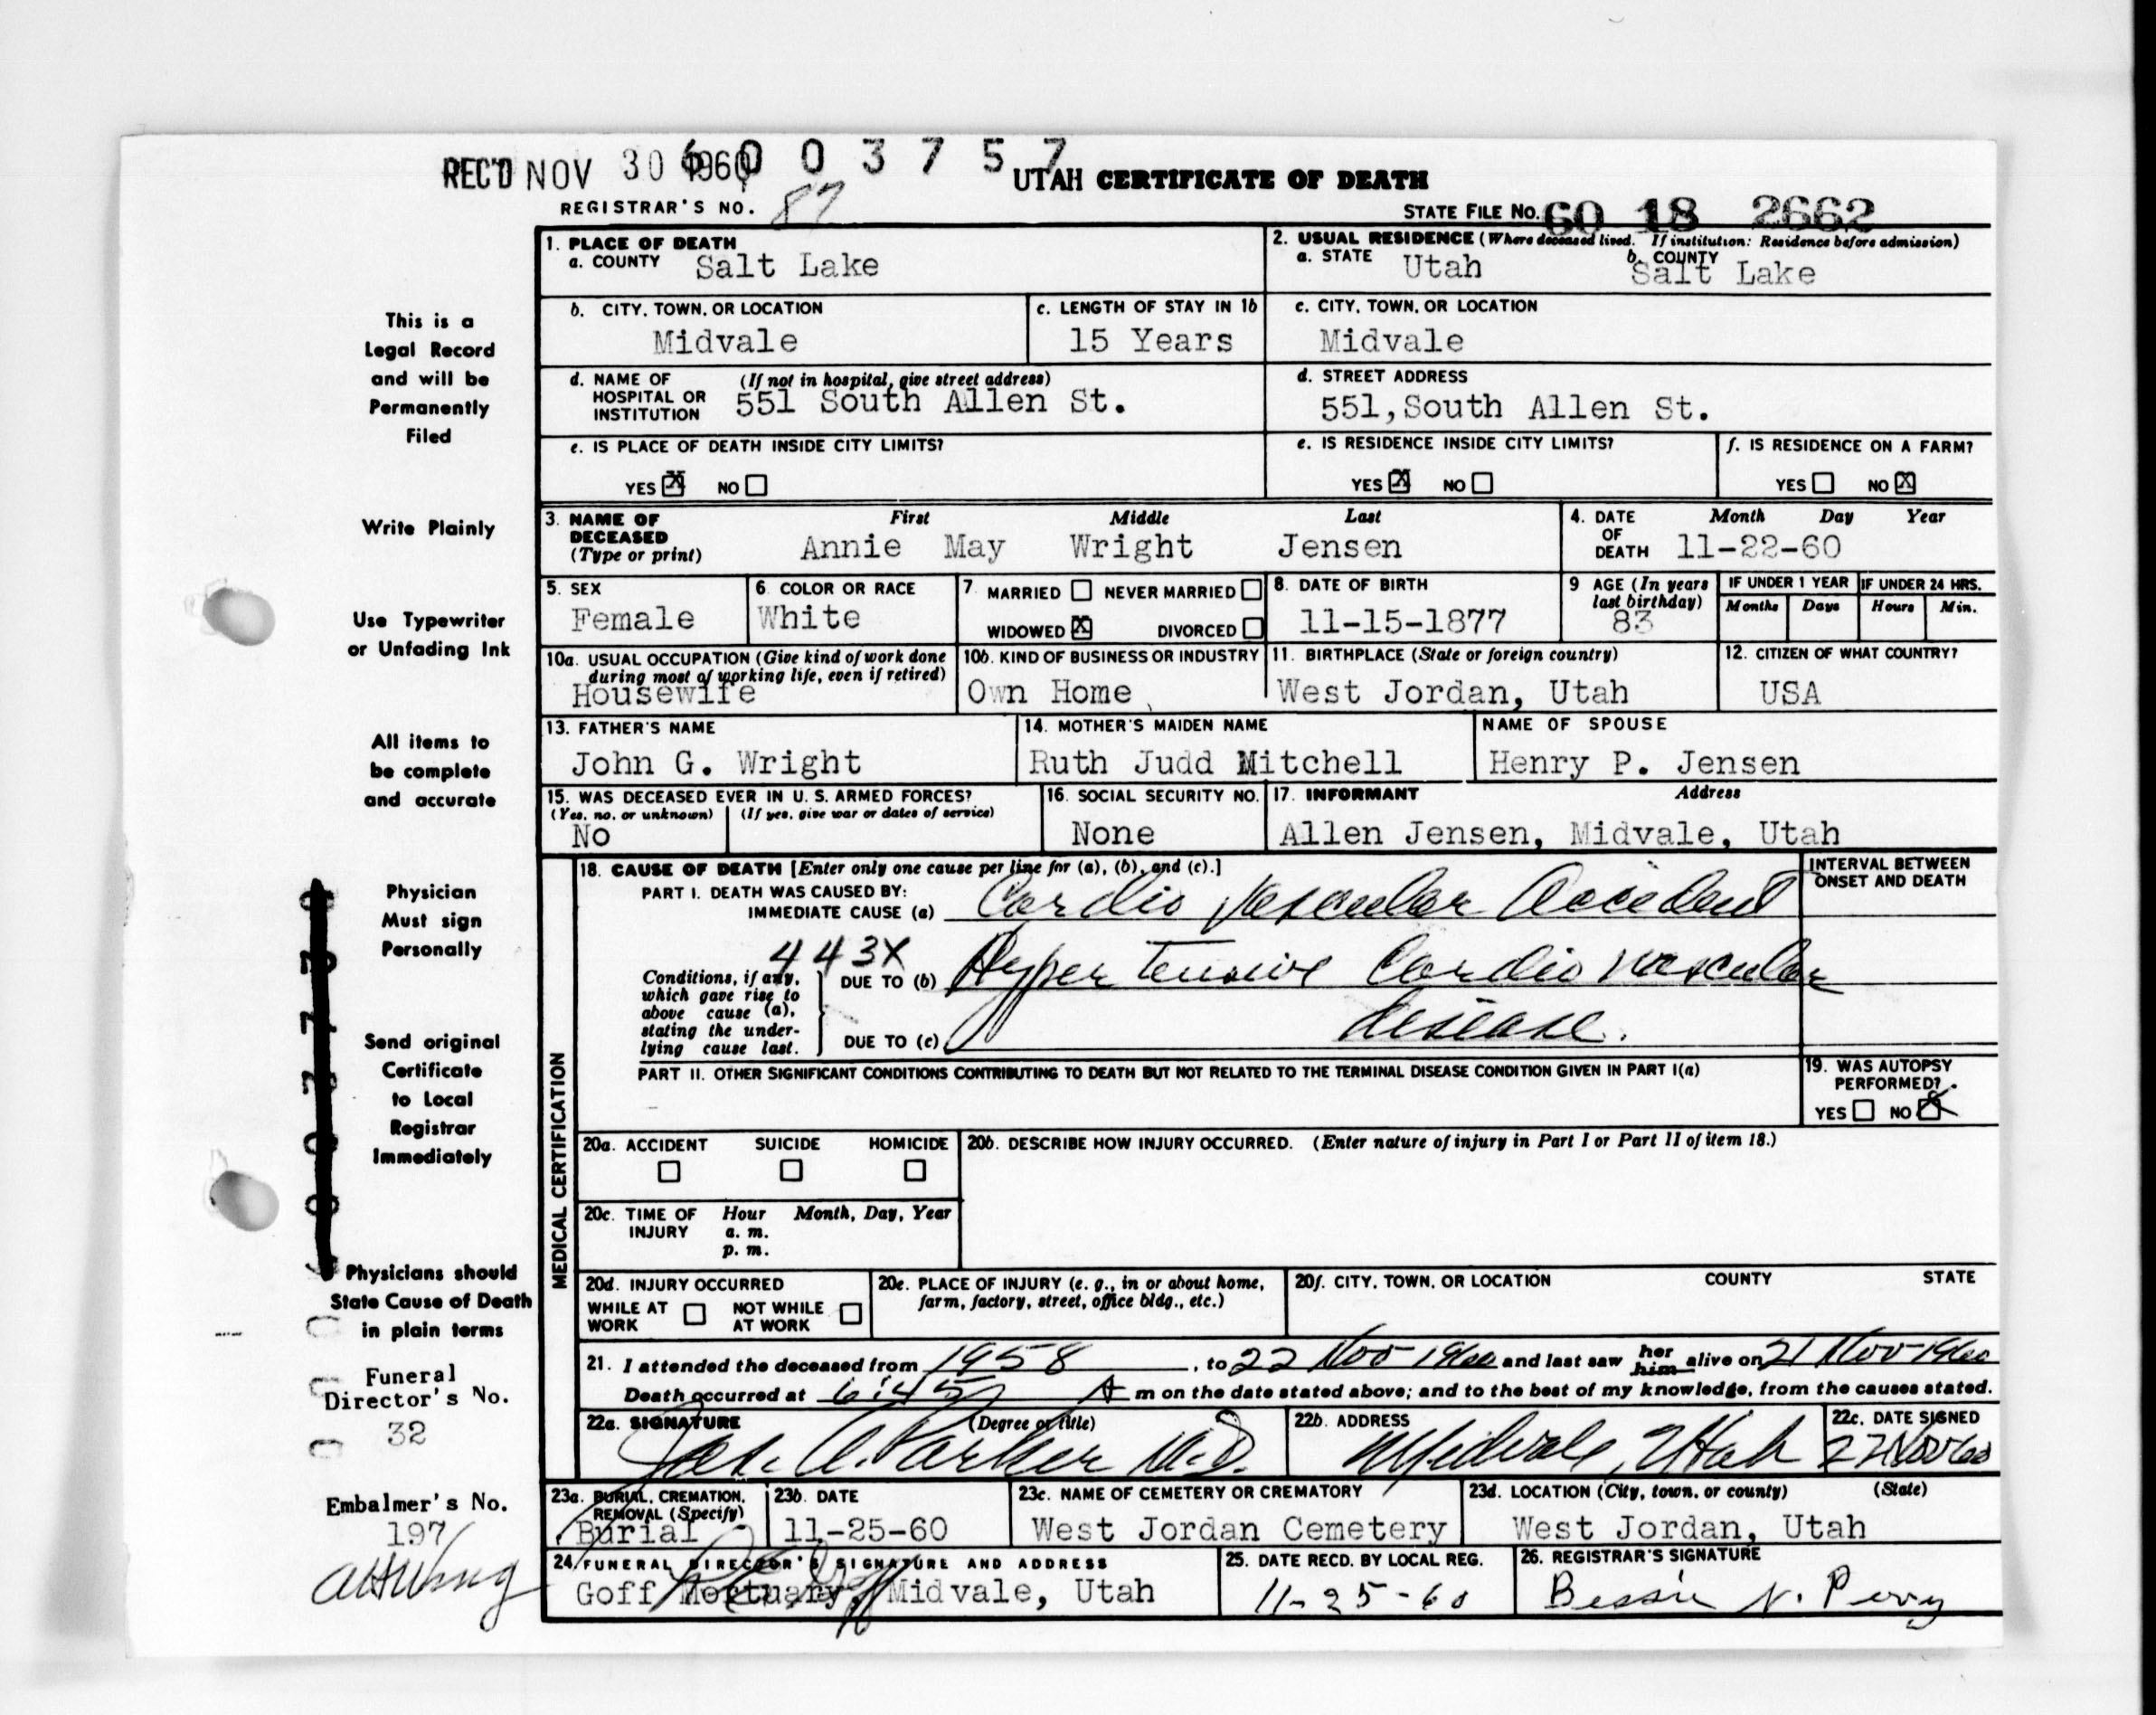 REC'D NOV 30 1960 6003757
UTAH CERTIFICATE OF DEATH
REGISTRAR'S NO. 87
STATE FILE NO. 60 18 2662
This is a
Legal Record
and will be
Permanently
Filed
Write Plainly
Use Typewriter
or Unfading Ink
All items to
be complete
and accurate
Physician
Must sign
Personally
Send original
Certificate
to Local
Registrar
Immediately
Physicians should
State Cause of Death
in plain terms
Funeral
Director's No.
32
Embalmer's No.
197
1. PLACE OF DEATH
a. COUNTY Salt Lake
2. USUAL RESIDENCE (Where deceased lived. If institution: Residence before admission)
a. STATE Utah b. COUNTY Salt Lake
b. CITY, TOWN, OR LOCATION
Midvale
c. LENGTH OF STAY IN 1b
15 Years
c. CITY, TOWN, OR LOCATION
Midvale
d. NAME OF HOSPITAL OR INSTITUTION (If not in hospital, give street address)
551 South Allen St.
d. STREET ADDRESS
551,South Allen St.
e. IS PLACE OF DEATH INSIDE CITY LIMITS?
YES X NO
e. IS RESIDENCE INSIDE CITY LIMITS?
YES X NO
f. IS RESIDENCE ON A FARM?
YES NO X
3. NAME OF DECEASED (Type or print) First Middle Last
Annie May Wright Jensen
4. DATE OF DEATH Month Day Year
11-22-60
5. SEX
Female
6. COLOR OR RACE
White
7. MARRIED NEVER MARRIED
WIDOWED X DIVORCED
8. DATE OF BIRTH
11-15-1877
9 AGE (In years last birthday)
83
IF UNDER 1 YEAR
Months Days
IF UNDER 24 HRS.
Hours Min.
10a. USUAL OCCUPATION (Give kind of work done during most of working life, even if retired)
Housewife
10b. KIND OF BUSINESS OR INDUSTRY
Own Home
11. BIRTHPLACE (State or foreign country)
West Jordan, Utah
12. CITIZEN OF WHAT COUNTRY?
USA
13. FATHER'S NAME
John G. Wright
14. MOTHER'S MAIDEN NAME
Ruth Judd Mitchell
NAME OF SPOUSE
Henry P. Jensen
15. WAS DECEASED EVER IN U. S. ARMED FORCES?
(Yes, no, or unknown) (If yes, give war or dates of service)
No
16. SOCIAL SECURITY NO.
None
17. INFORMANT Address
Allen Jensen, Midvale, Utah
MEDICAL CERTIFICATION
18. CAUSE OF DEATH [Enter only one cause per line for (a), (b), and (c).]
INTERVAL BETWEEN
ONSET AND DEATH
PART I. DEATH WAS CAUSED BY:
IMMEDIATE CAUSE (a) Cardio Vascular Accident
443X
Conditions, if any,
which gave rise to
above cause (a),
stating the under-
lying cause last.
DUE TO (b) Hyper tensive Cardio vascular
disease.
DUE TO (c)
PART II. OTHER SIGNIFICANT CONDITIONS CONTRIBUTING TO DEATH BUT NOT RELATED TO THE TERMINAL DISEASE CONDITION GIVEN IN PART I(a)
19. WAS AUTOPSY
PERFORMED?
YES NO X
20a. ACCIDENT SUICIDE HOMICIDE
20b. DESCRIBE HOW INJURY OCCURRED. (Enter nature of injury in Part I or Part II of item 18.)
20c. TIME OF INJURY Hour Month, Day, Year
a. m.
p. m.
20d. INJURY OCCURRED
WHILE AT WORK NOT WHILE AT WORK
20e. PLACE OF INJURY (e. g., in or about home, farm, factory, street, office bldg., etc.)
20f. CITY, TOWN, OR LOCATION COUNTY STATE
21. I attended the deceased from 1958, to 22 Nov 1960 and last saw her him alive on 21 Nov 1960
Death occurred at 6:45 A m on the date stated above; and to the best of my knowledge, from the causes stated.
22a. SIGNATURE (Degree or title)
Jas. A. Parker M.D.
22b. ADDRESS
Midvale, Utah
22c. DATE SIGNED
22 Nov 60
23a. BURIAL, CREMATION, REMOVAL (Specify)
Burial
23b. DATE
11-25-60
23c. NAME OF CEMETERY OR CREMATORY
West Jordan Cemetery
23d. LOCATION (City, town, or county) (State)
West Jordan, Utah
24. FUNERAL DIRECTOR'S SIGNATURE AND ADDRESS
Goff Mortuary, Midvale, Utah
25. DATE RECD. BY LOCAL REG.
11-25-60
26. REGISTRAR'S SIGNATURE
Bessie N. Perry